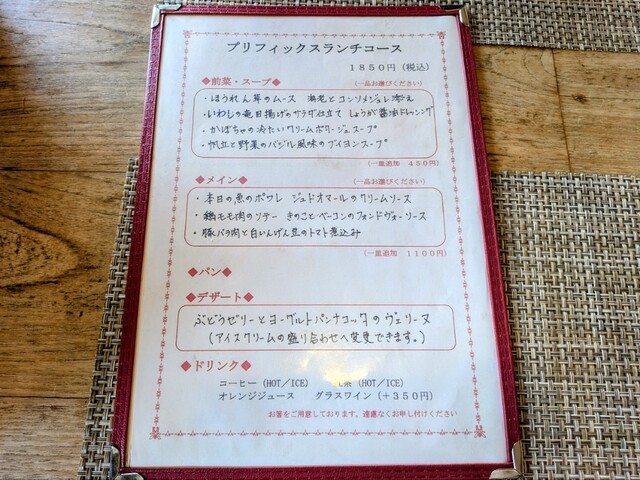 プリフィックスランチコース
1850円（税込）
◆前菜・スープ◆ （一品お選びください）
・ほうれん草のムース 海老とコンソメジュレ添え
・いわしの竜田揚げのサラダ仕立て しょうが醤油ドレッシング
・かぼちゃの冷たいクリームポタージュスープ
・帆立と野菜のバジル風味のブイヨンスープ
（一皿追加 450円）
◆メイン◆ （一品お選びください）
・本日の魚のポワレ ジュドオマールのクリームソース
・鶏モモ肉のソテー きのことベーコンのフォンドヴォーソース
・豚バラ肉と白いんげん豆のトマト煮込み
（一皿追加 1100円）
◆パン◆
◆デザート◆
ぶどうゼリーとヨーグルトパンナコッタのヴェリーヌ
（アイスクリームの盛り合わせへ変更できます。）
◆ドリンク◆
コーヒー（HOT／ICE） 茶（HOT／ICE）
オレンジジュース グラスワイン（＋350円）
お箸をご用意しております。遠慮なくお申し付けください